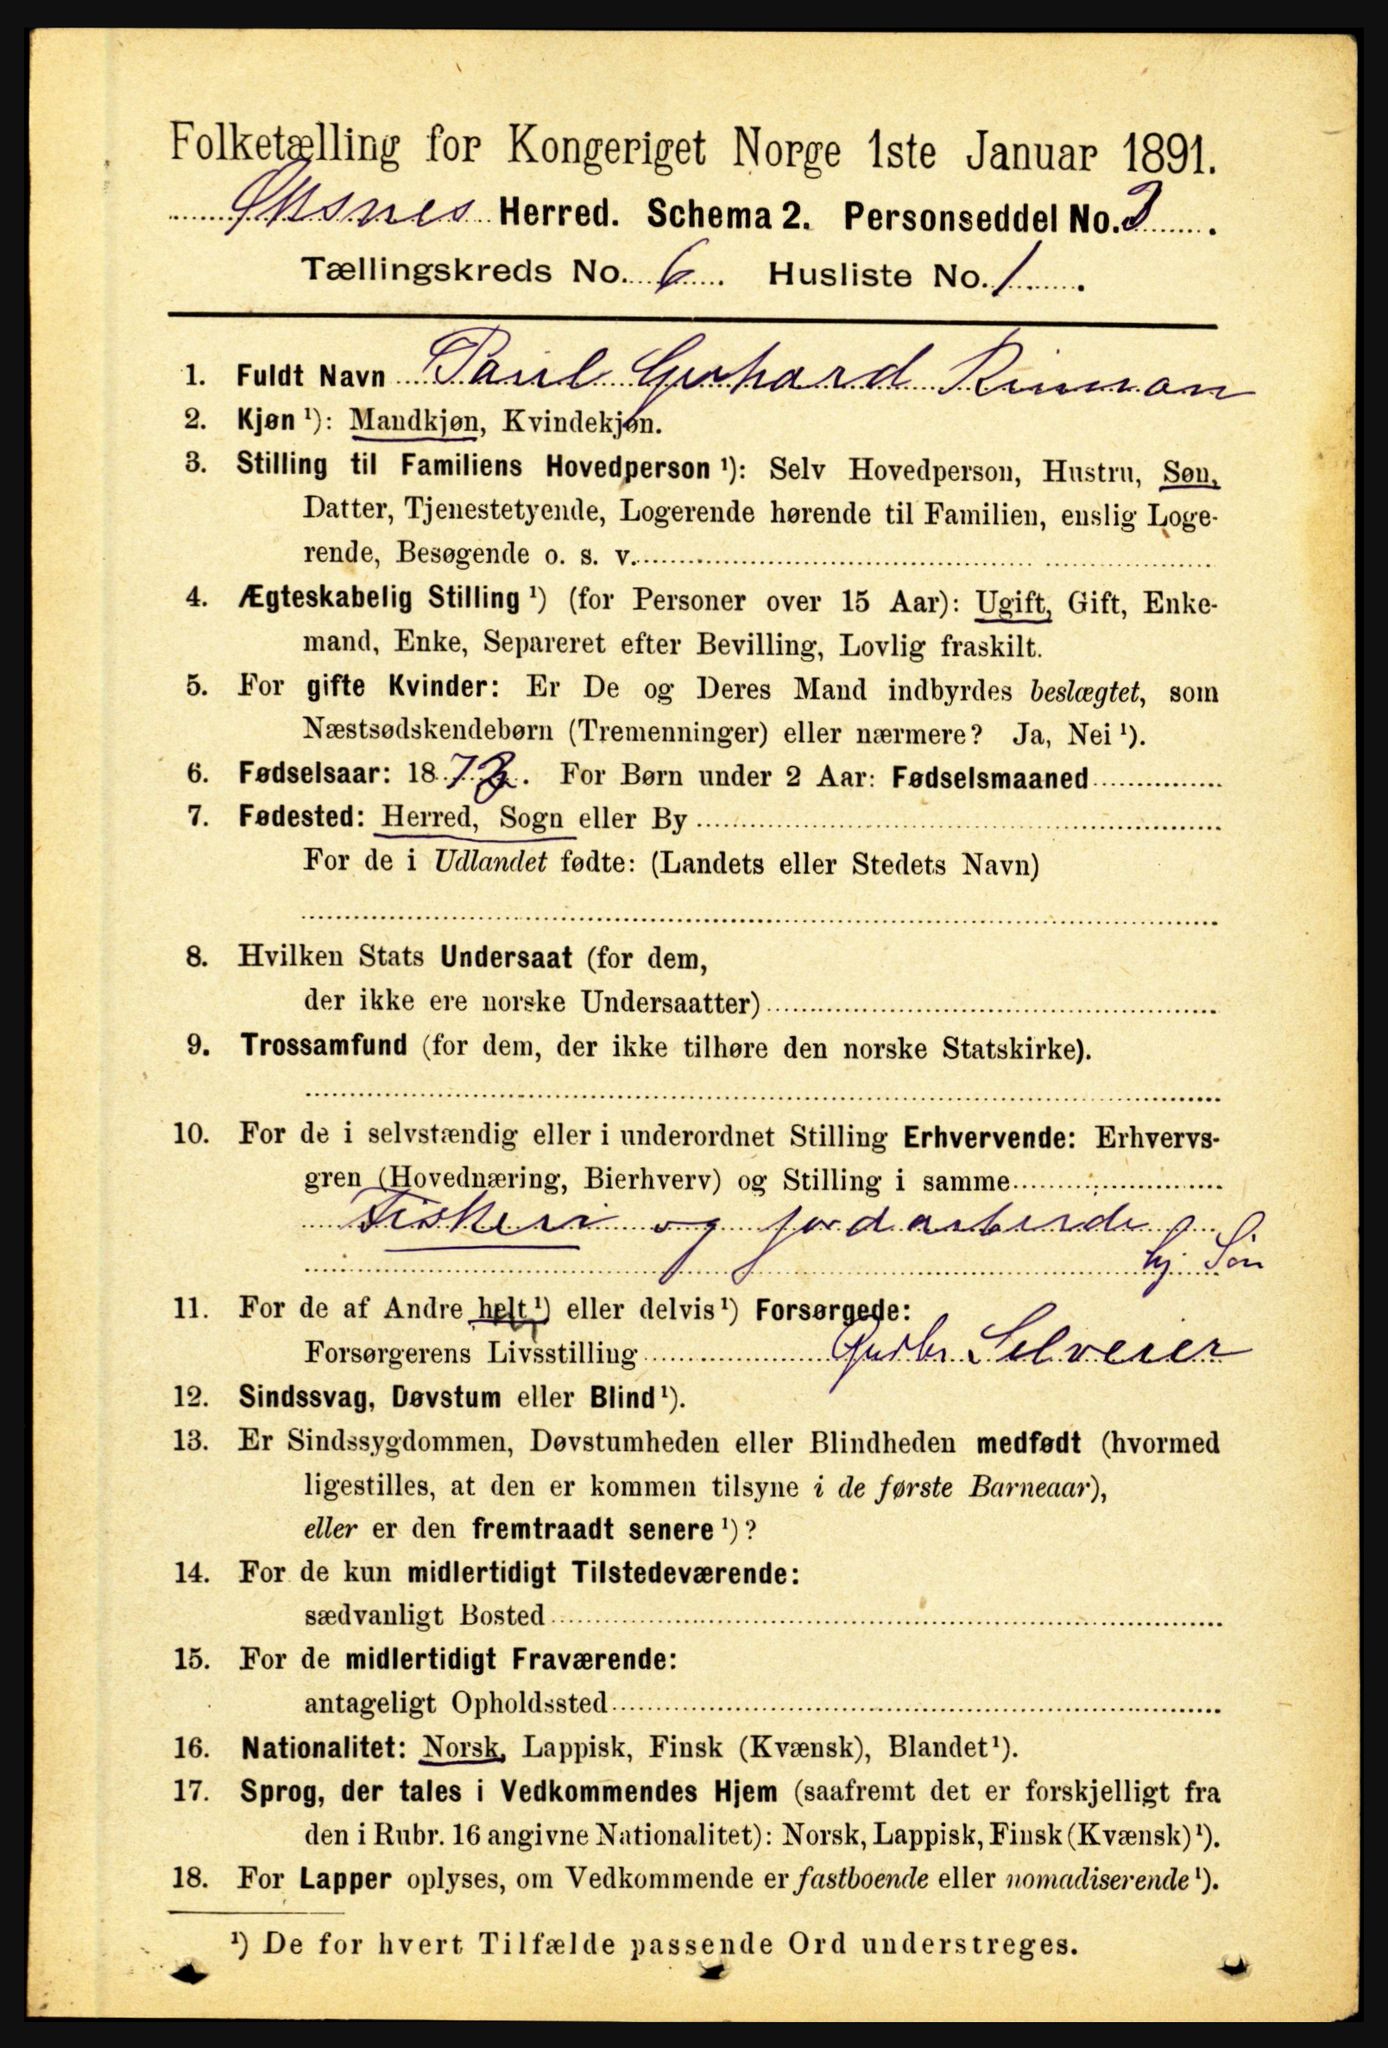 Folketælling for Kongeriget Norge 1ste Januar 1891.
Øksnes Herred. Schema 2. Personseddel No. 3.
Tællingskreds No. 6. Husliste No. 1.
1. Fuldt Navn Paul Gerhard
2. Kjøn ¹): Mandkjøn, Kvindekjøn.
3. Stilling til Familiens Hovedperson ¹): Selv Hovedperson, Hustru, Søn,
Datter, Tjenestetyende, Logerende hørende til Familien, enslig Loge-
rende, Besøgende o. s. v.
4. Ægteskabelig Stilling ¹) (for Personer over 15 Aar): Ugift, Gift, Enke-
mand, Enke, Separeret efter Bevilling, Lovlig fraskilt.
5. For gifte Kvinder: Er De og Deres Mand indbyrdes beslægtet, som
Næstsødskendebørn (Tremenninger) eller nærmere? Ja, Nei ¹).
6. Fødselsaar: 187. For Børn under 2 Aar: Fødselsmaaned
7. Fødested: Herred, Sogn eller By
For de i Udlandet fødte: (Landets eller Stedets Navn)
8. Hvilken Stats Undersaat (for dem,
der ikke ere norske Undersaatter)
9. Trossamfund (for dem, der ikke tilhøre den norske Statskirke).
10. For de i selvstændig eller i underordnet Stilling Erhvervende: Erhvervs-
gren (Hovednæring, Bierhverv) og Stilling i samme
Fiskeri og jordarbeide
hj Søn
11. For de af Andre helt ¹) eller delvis ¹) Forsørgede:
Forsørgerens Livsstilling Gudbr Selveier
12. Sindssvag, Døvstum eller Blind ¹).
13. Er Sindssygdommen, Døvstumheden eller Blindheden medfødt (hvormed
ligestilles, at den er kommen tilsyne i de første Barneaar),
eller er den fremtraadt senere ¹)?
14. For de kun midlertidigt Tilstedeværende:
sædvanligt Bosted
15. For de midlertidigt Fraværende:
antageligt Opholdssted
16. Nationalitet: Norsk, Lappisk, Finsk (Kvænsk), Blandet ¹).
17. Sprog, der tales i Vedkommendes Hjem (saafremt det er forskjelligt fra
den i Rubr. 16 angivne Nationalitet): Norsk, Lappisk, Finsk (Kvænsk) ¹).
18. For Lapper oplyses, om Vedkommende er fastboende eller nomadiserende ¹).
¹) De for hvert Tilfælde passende Ord understreges.